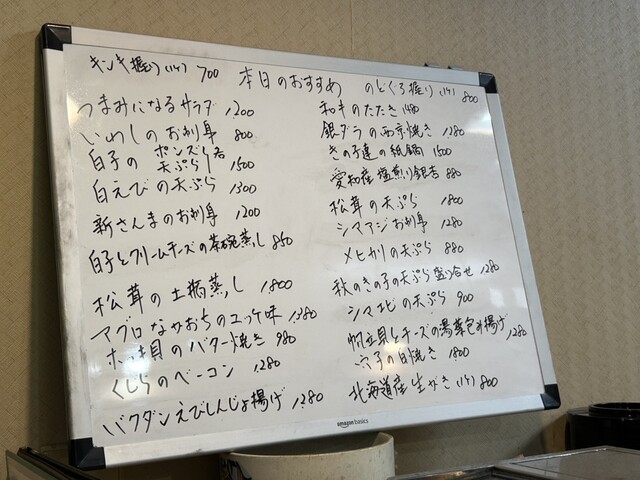 キンキ握り(1ケ) 700 本日のおすすめ のどぐろ握り(1ケ) 800
つまみになるサラダ 1200
いわしのお刺身 800
白子の ポンズ 天ぷら 各1500
白えびの天ぷら 1300
新さんまのお刺身 1200
白子とクリームチーズの茶碗蒸し 850
松茸の土瓶蒸し 1800
マグロなかおちのユッケ味 1380
ホッキ貝のバター焼き 980
くじらのベーコン 1280
バクダンえびしんじょ揚げ 1280
和牛のたたき 1480
銀ダラの西京焼き 1280
きの子達の紙鍋 1500
愛知産塩煎り銀杏 880
松茸の天ぷら 1800
シマアジお刺身 1280
メヒカリの天ぷら 880
秋のきの子の天ぷら盛り合せ 1280
シマエビの天ぷら 900
帆立貝とチーズの湯葉包み揚げ 1280
穴子の白焼き 1800
北海道産生がき(1ケ) 800
amazon basics